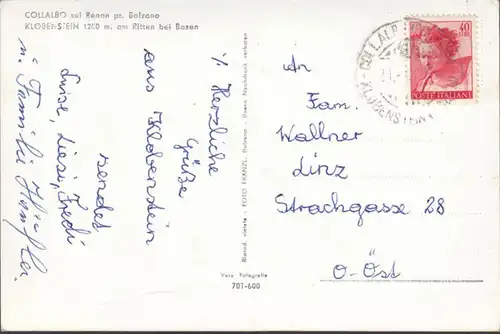 COLLALBO sul Renon pr. Bolzano
KLOBENSTEIN 1200 m. am Ritten bei Bozen
Herzliche
Grüße
aus Klobenstein
sendet
Luise, Liesi, Fredi
u. Familie
Riprod. vietata - FOTO FRANZL, Bolzano - Bozen Nachdruck verboten
Vera Fotografia
707-600
40
POSTE ITALIANE
KLOBENSTEIN
An
Fam.
Wallner
Linz
Strachgasse 28
O-Öst